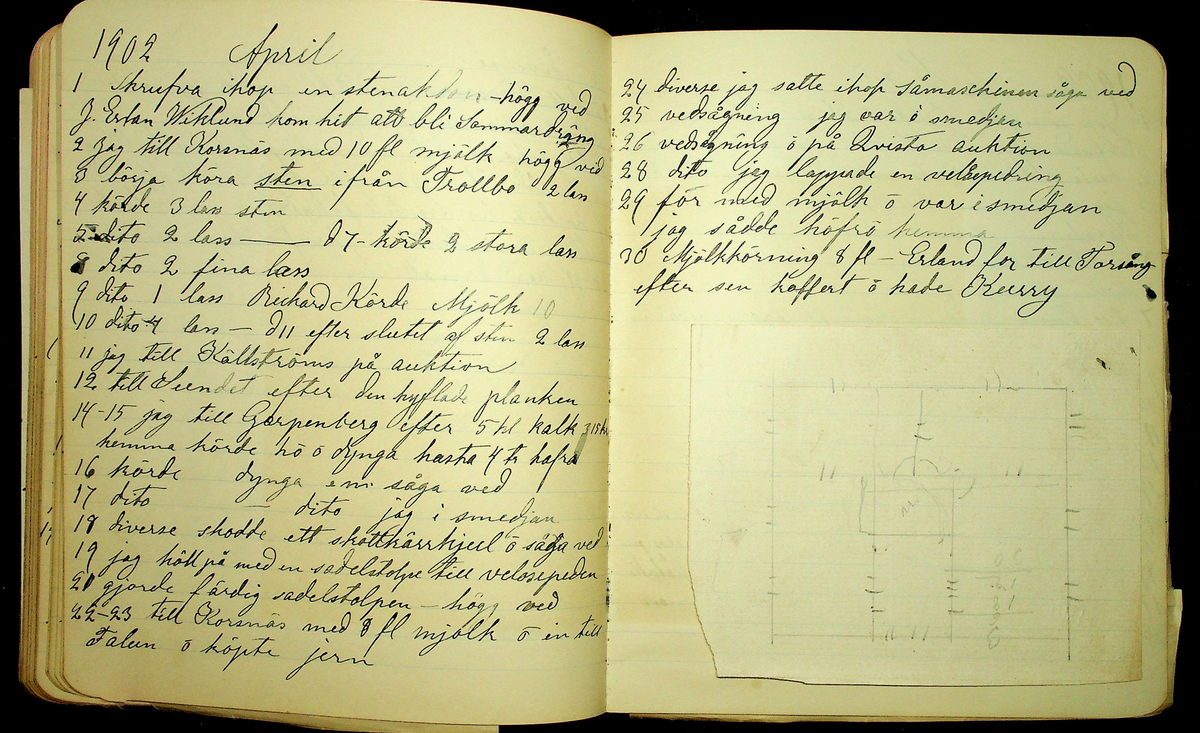 1902 April
1 Skrufva ihop en stenakdon - högg ved
J. Erlan Wiklund kom hit att bli Sommardräng
2 jag till Korsnäs med 10 fl mjölk högg ved
3 börja köra sten ifrån Trollbo 2 lass
4 körde 3 lass sten
5 dito 2 lass — d 7 - körde 2 stora lass
8 dito 2 fina lass
9 dito 1 lass Richard Körde Mjölk 10
10 dito 4 lass — d 11 efter slutet af sten 2 lass
11 jag till Källströms på auktion
12 till Sundet efter den hyflade planken
14-15 jag till Garpenberg efter 5 hl kalk
hemma körde hö ö dynga 4 th hafra
16 körde dynga em såga ved
17 dito — dito jag i smedjan
18 diverse skodde ett skottkärrhjul ö såga ved
19 jag höll på med en sadelstolpe till velosepeden
20 gjorde färdig sadelstolpen - högg ved
22-23 till Korsnäs med 8 fl mjölk ö in till
Falun ö köpte jern
24 diverse jag satte ihop såmaschinen såga ved
25 vedsågning jag var i smedjan
26 vedsågning ö på Qvista auktion
28 dito jag lappade en velosepedring
29 for med mjölk ö var i smedjan
jag sådde höfrö hemma
30 Mjölkkörning 8 fl - Erland for till Torsång
efter sen koffert ö hade Kurry